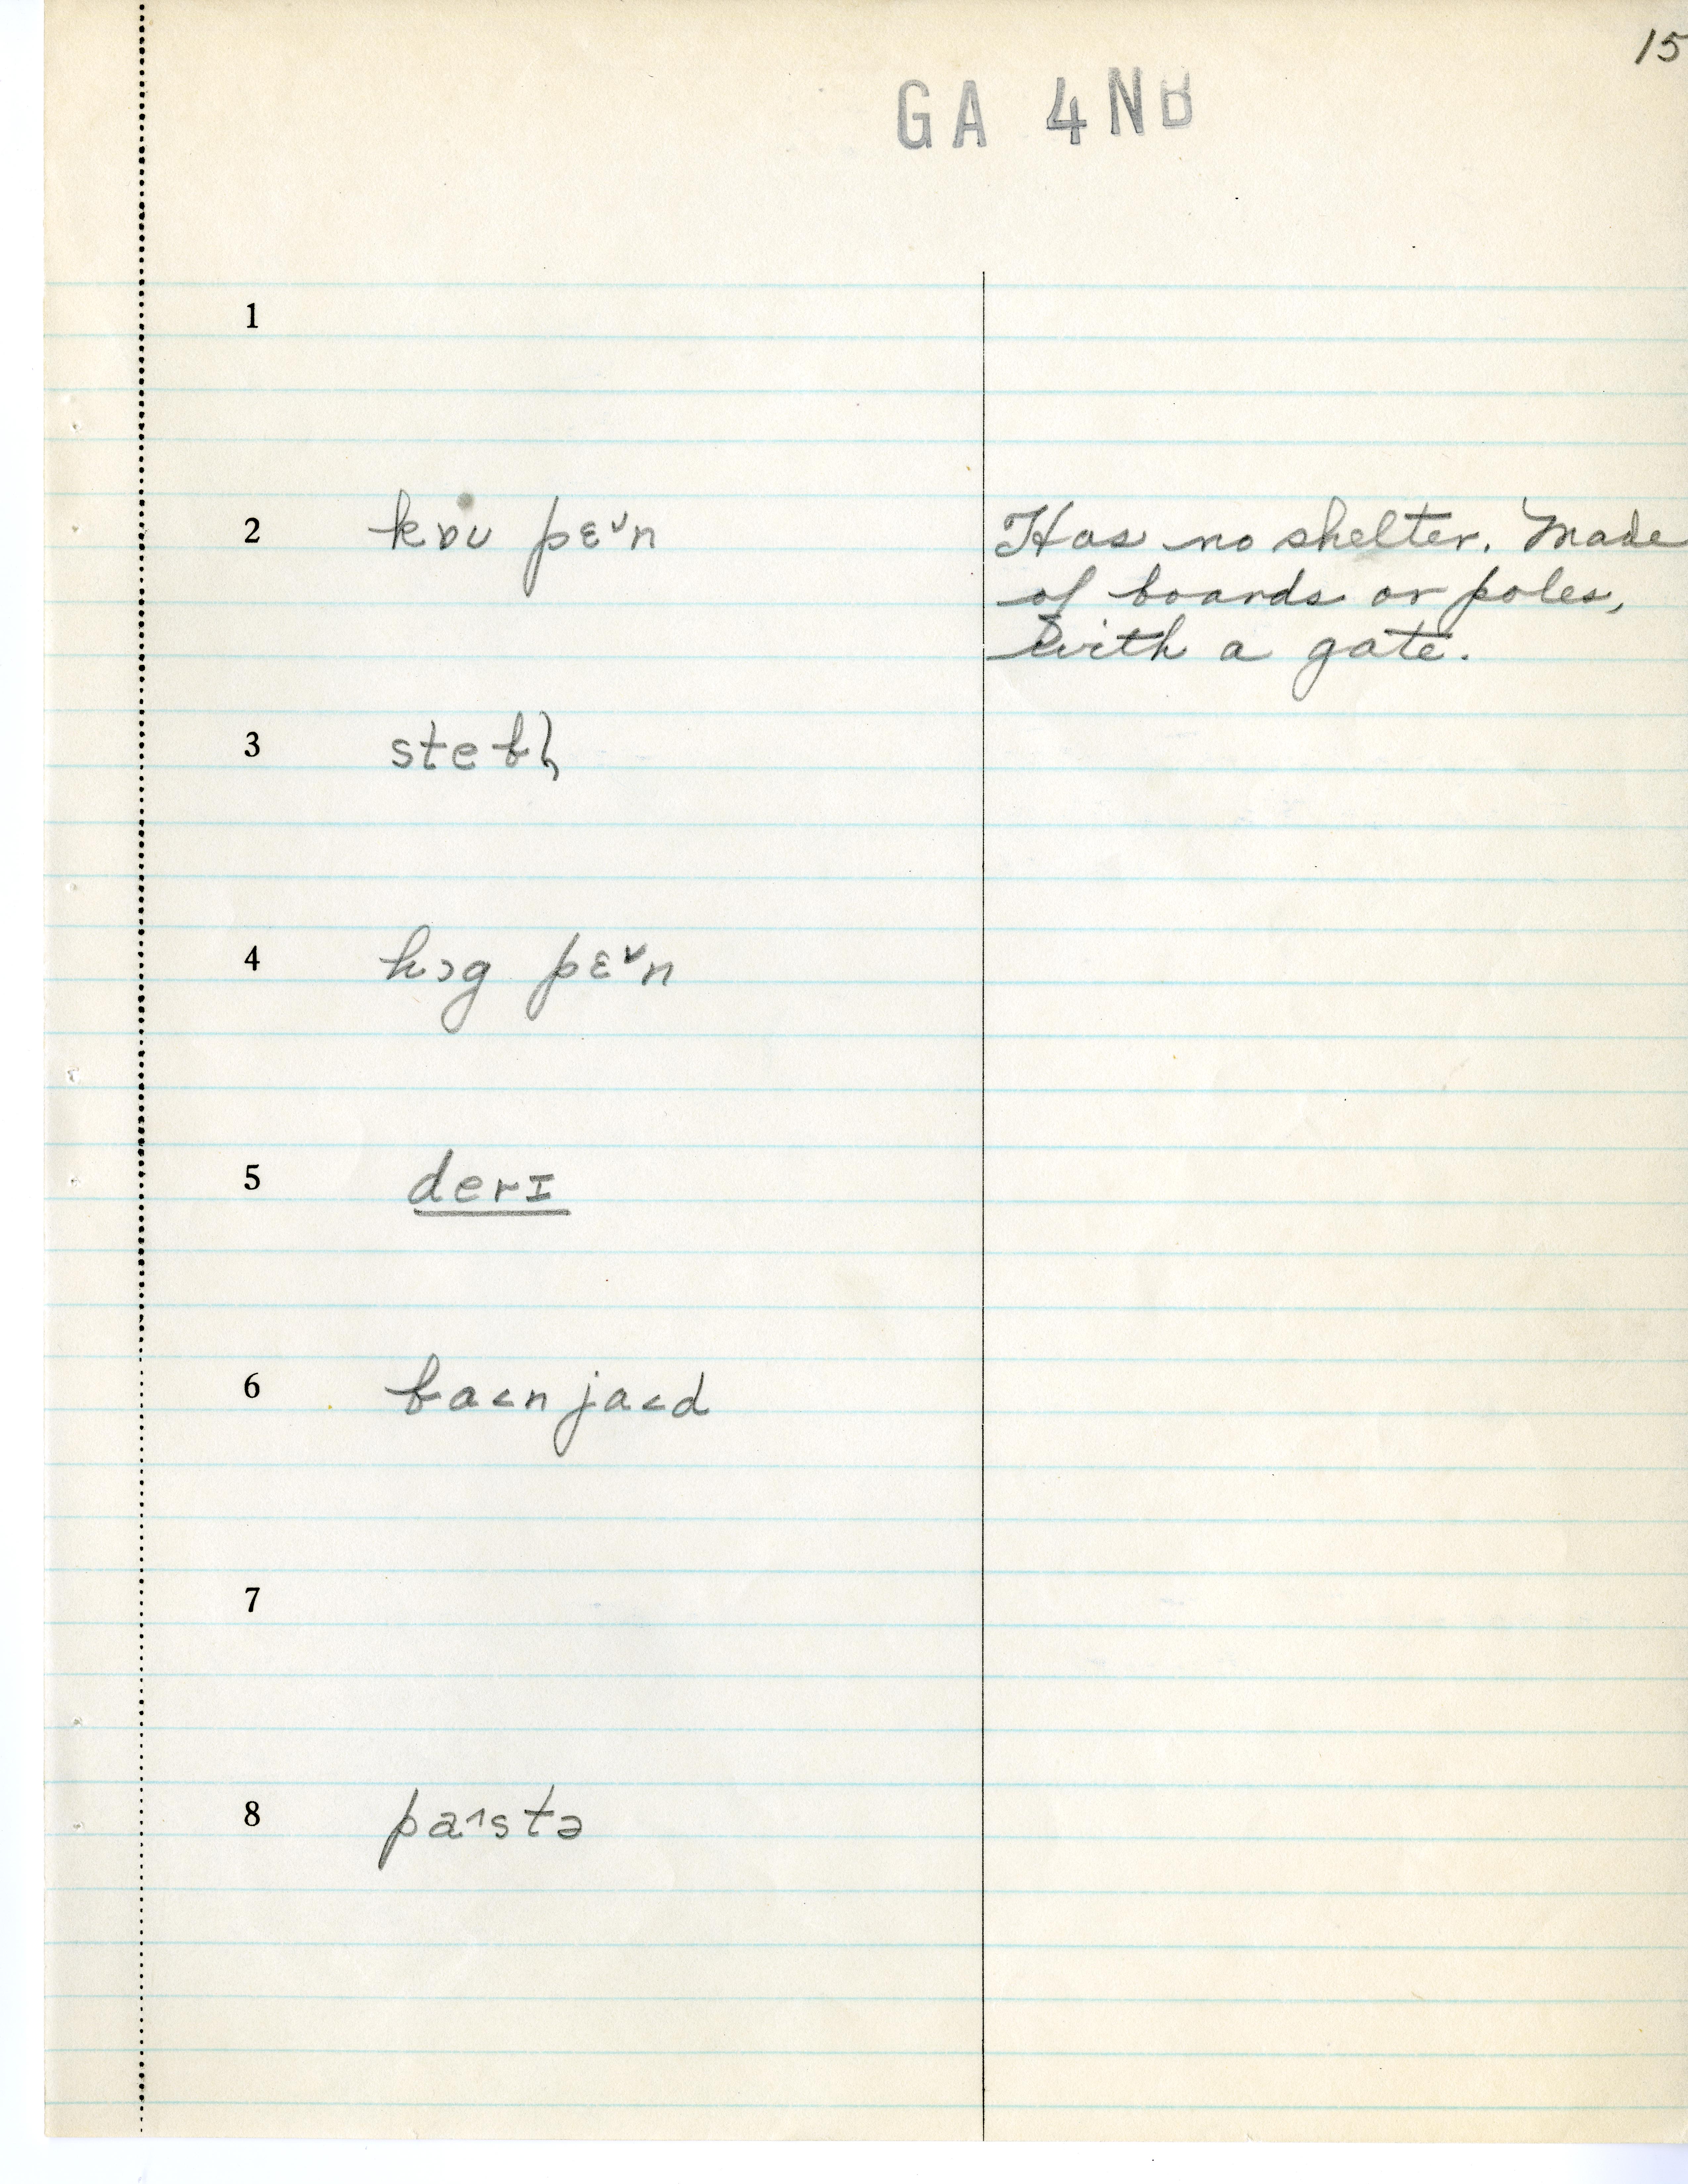 15
GA 4NB
1
2 kɒu pɛ˅n Has no shelter. Made
of boards or poles,
with a gate.
3 stebl̩
4 hɔg pɛ˅n
5 derɪ
6 ba˂n ja˂d
7
8 pa˄stə